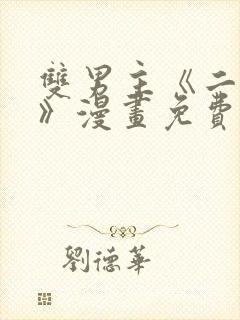 雙男主《二
》漫畫免費
劉德華